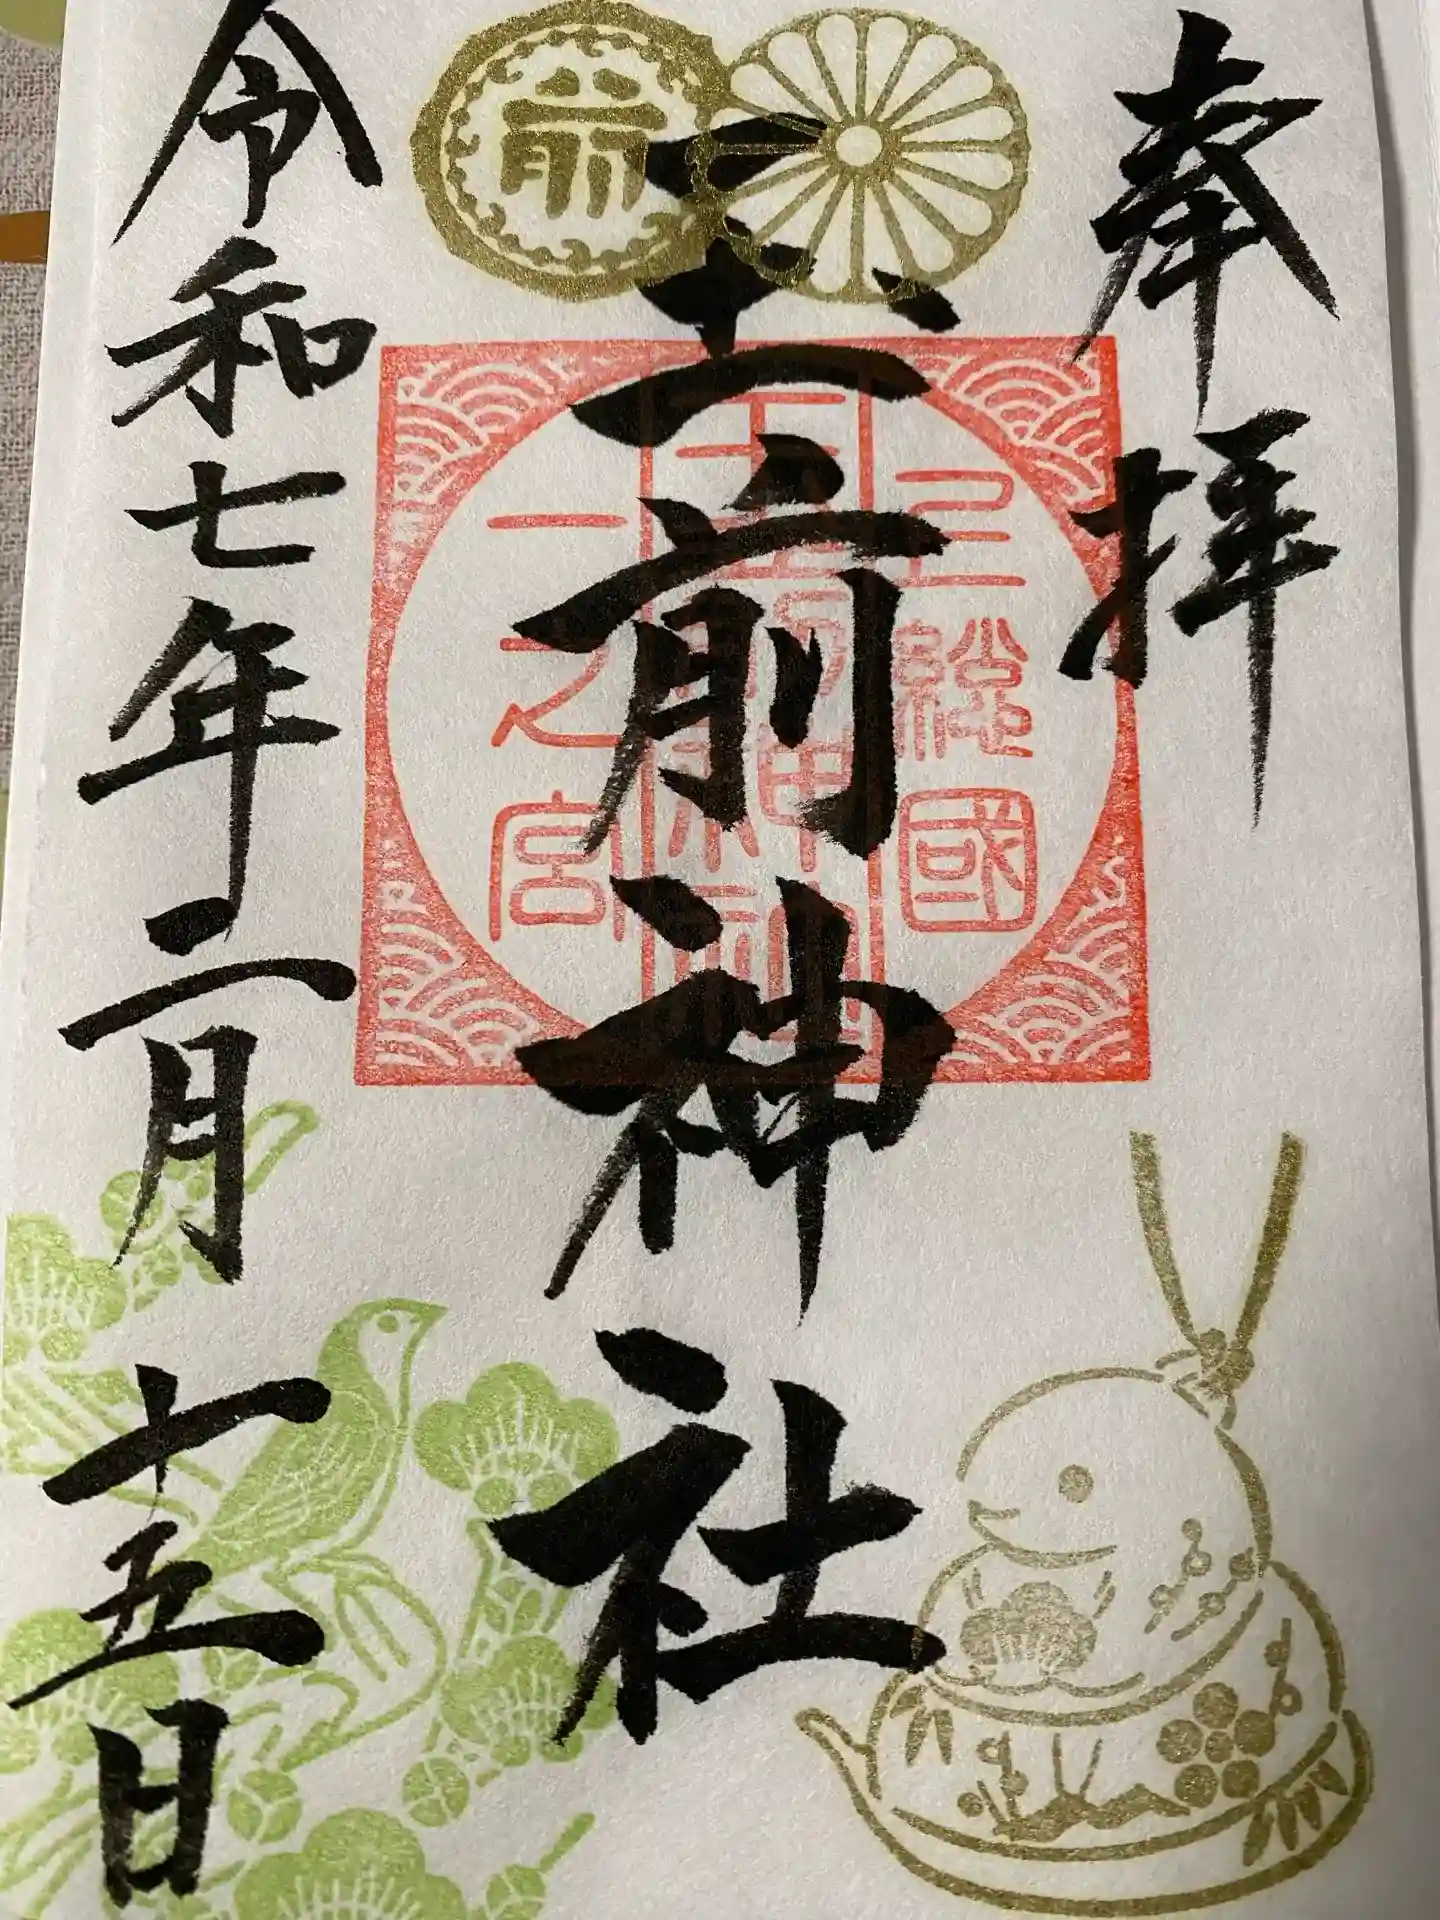 奉拝
前
玉前神社
上總國
一之宮
令和七年二月十五日